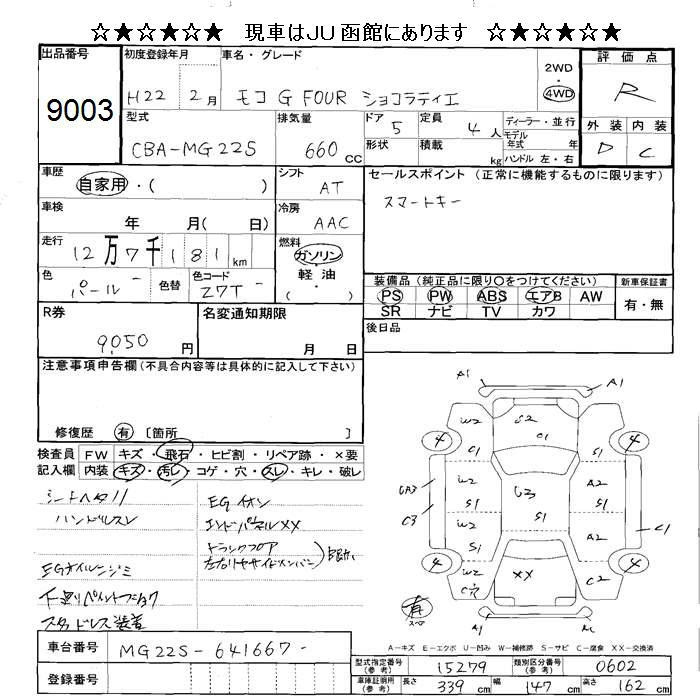 ☆★☆★☆★ 現車はJU函館にあります ☆★☆★☆★
出品番号
9003
初度登録年月
H22 2月
車名・グレード
モコ G FOUR ショコラティエ
2WD
4WD
評価点
R
外装 内装
D C
型式
CBA-MG22S
排気量
660 cc
ドア
5
定員
4 人
形状
積載
kg
ディーラー・並行
モデル
年式 年
ハンドル 左・右
車歴
自家用・( )
シフト
AT
車検
年 月( 日)
冷房
AAC
走行
12万7千181km
燃料
ガソリン
・
軽油
( )
色
パール
色替
色コード
Z7T
セールスポイント(正常に機能するものに限ります)
スマートキー
装備品(純正品に限り〇をつけてください)
PS PW ABS エアB AW
SR ナビ TV カワ
新車保証書
有・無
後日品
R券
9,050 円
名変通知期限
月 日
注意事項申告欄(不具合内容等は具体的に記入して下さい)
修復歴 有 〔箇所 〕
検査員 FW キズ・飛石・ヒビ割・リペア跡・×要
記入欄 内装 キズ・汚レ・コゲ・穴・スレ・キレ・破レ
シートヘタリ
ハンドルスレ
EGオイルニジミ
下廻りペイントブラック
スタッドレス装着
EGイオン
エンドパネルXX
トランクフロア
左右リヤサイドメンバー
A1 A1
W2 S2 C1 S1
4 4
UA3 C3
W2 S1 U3 S1 A2
W2 S1 S1 A2 C1
4 4
W2 C穴 XX C2
有
スペア
A1
A－キズ E－エクボ U－凹み W－補修跡 S－サビ C－腐食 XX－交換済
車台番号
MG22S-641667-
登録番号
型式指定番号
(参考)
15279
類別区分番号
(参考)
0602
車庫証明用
(参考)
長さ 339 cm 幅 147 cm 高さ 162 cm